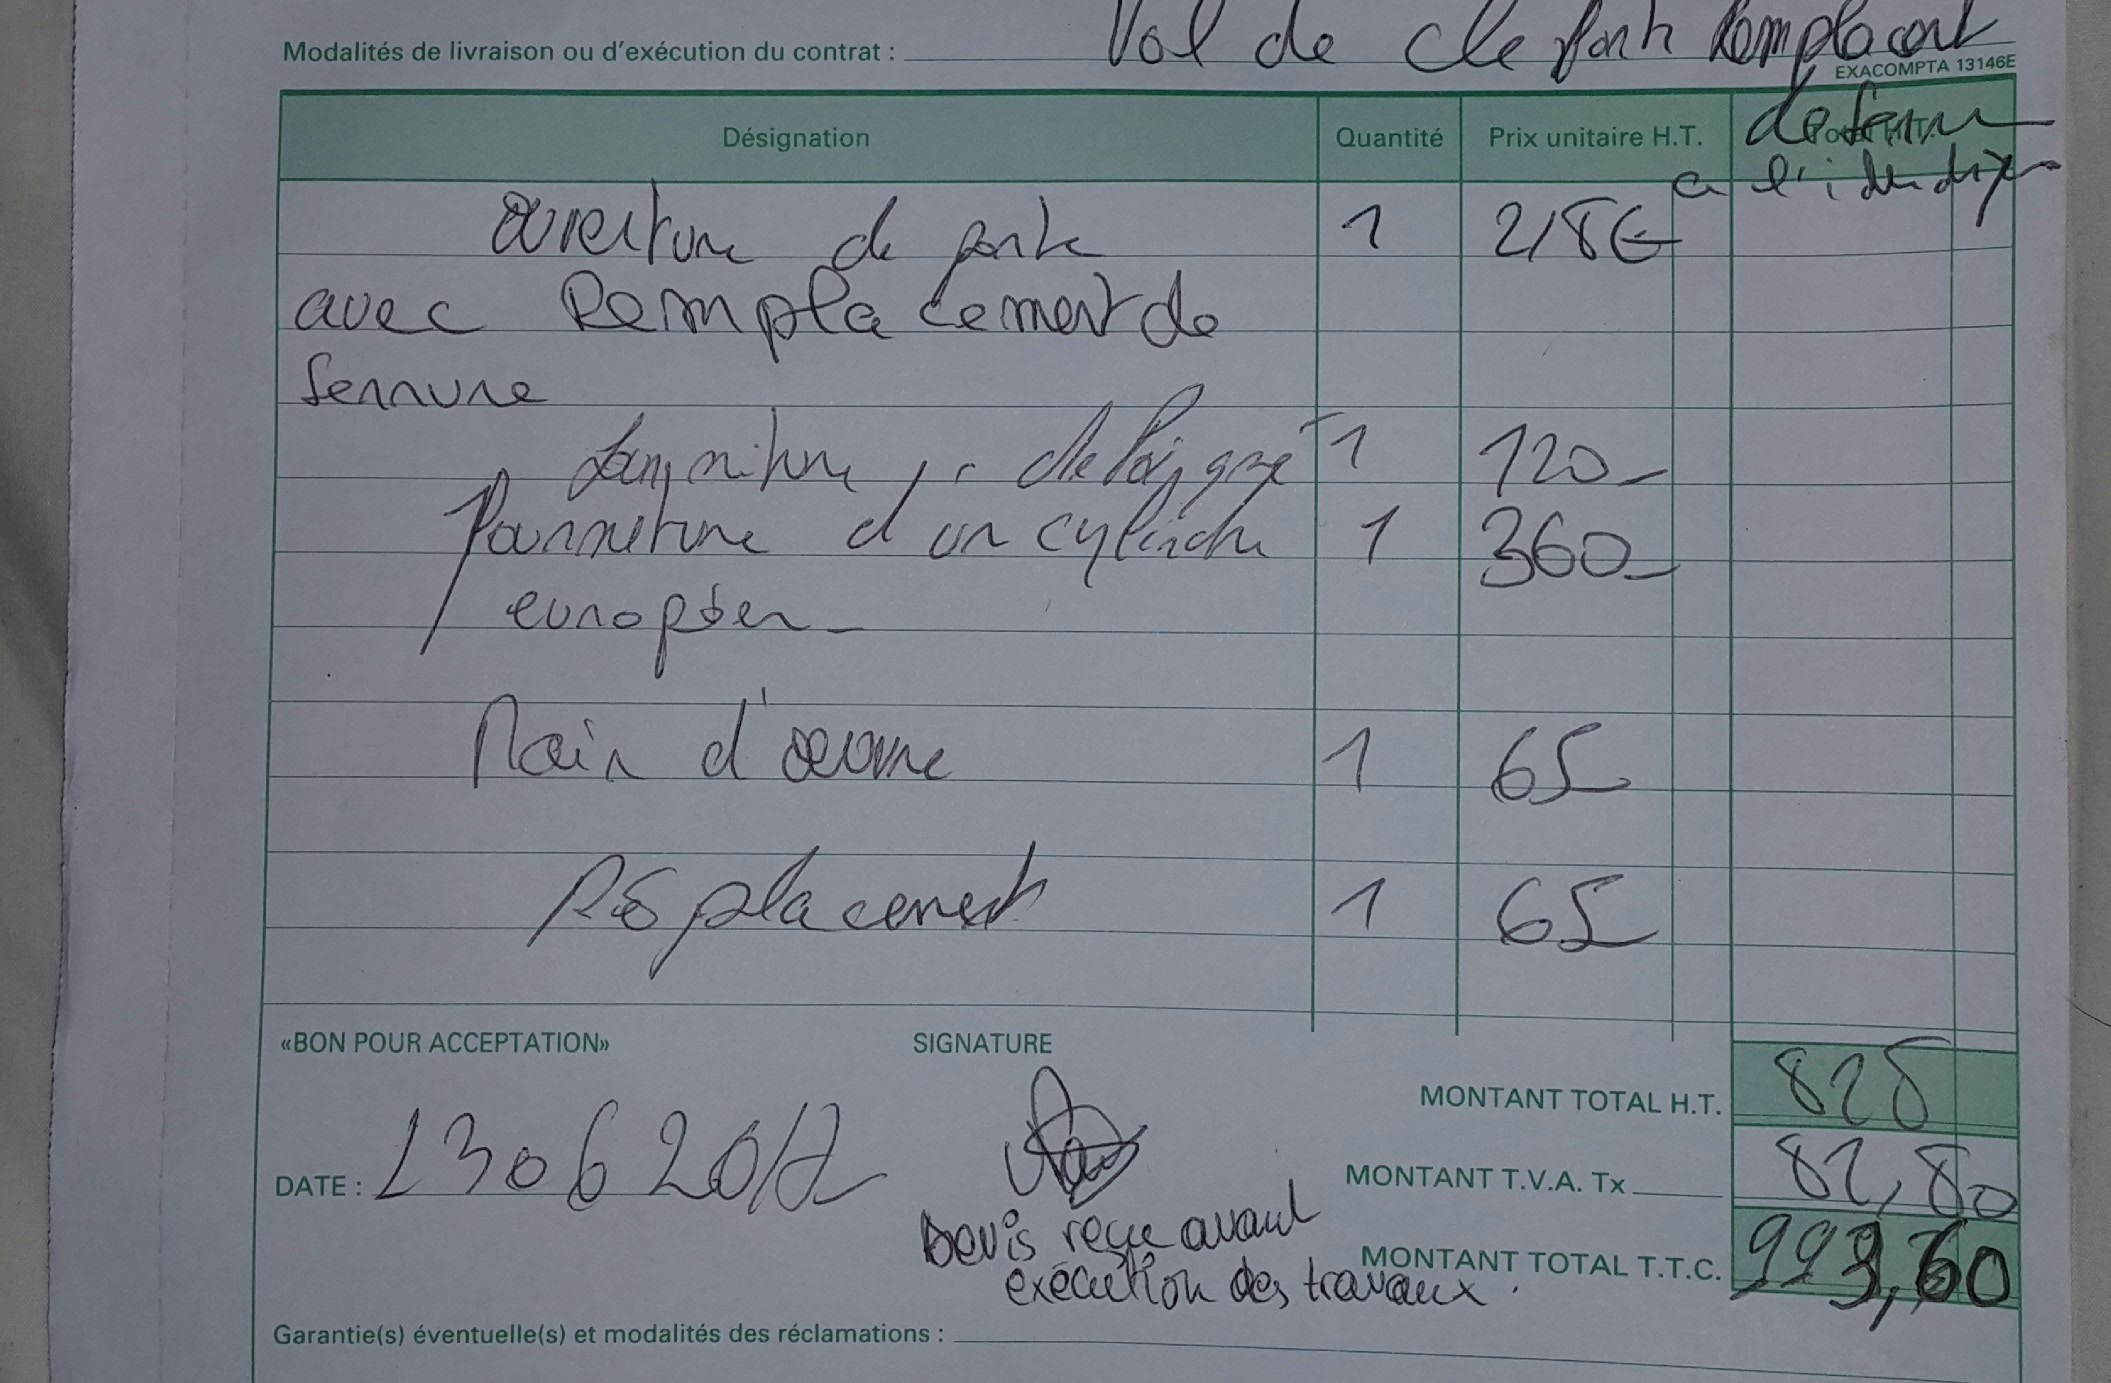 Vol de cle porte Remplacent
Modalités de livraison ou d'exécution du contrat :
EXACOMPTA 13146E
de serrure
a l'identique
Désignation Quantité Prix unitaire H.T.
ouverture de porte 1 218€
avec Remplacement de
serrure
1 120-
Fourniture d'un cylindre 1 360-
européen-
Main d'oeuvre 1 65
Déplacement 1 65
«BON POUR ACCEPTATION» SIGNATURE
MONTANT TOTAL H.T. 828
DATE :
MONTANT T.V.A. Tx 82,80
Devis reçue avant
exécution des travaux.
MONTANT TOTAL T.T.C. 993,60
Garantie(s) éventuelle(s) et modalités des réclamations :